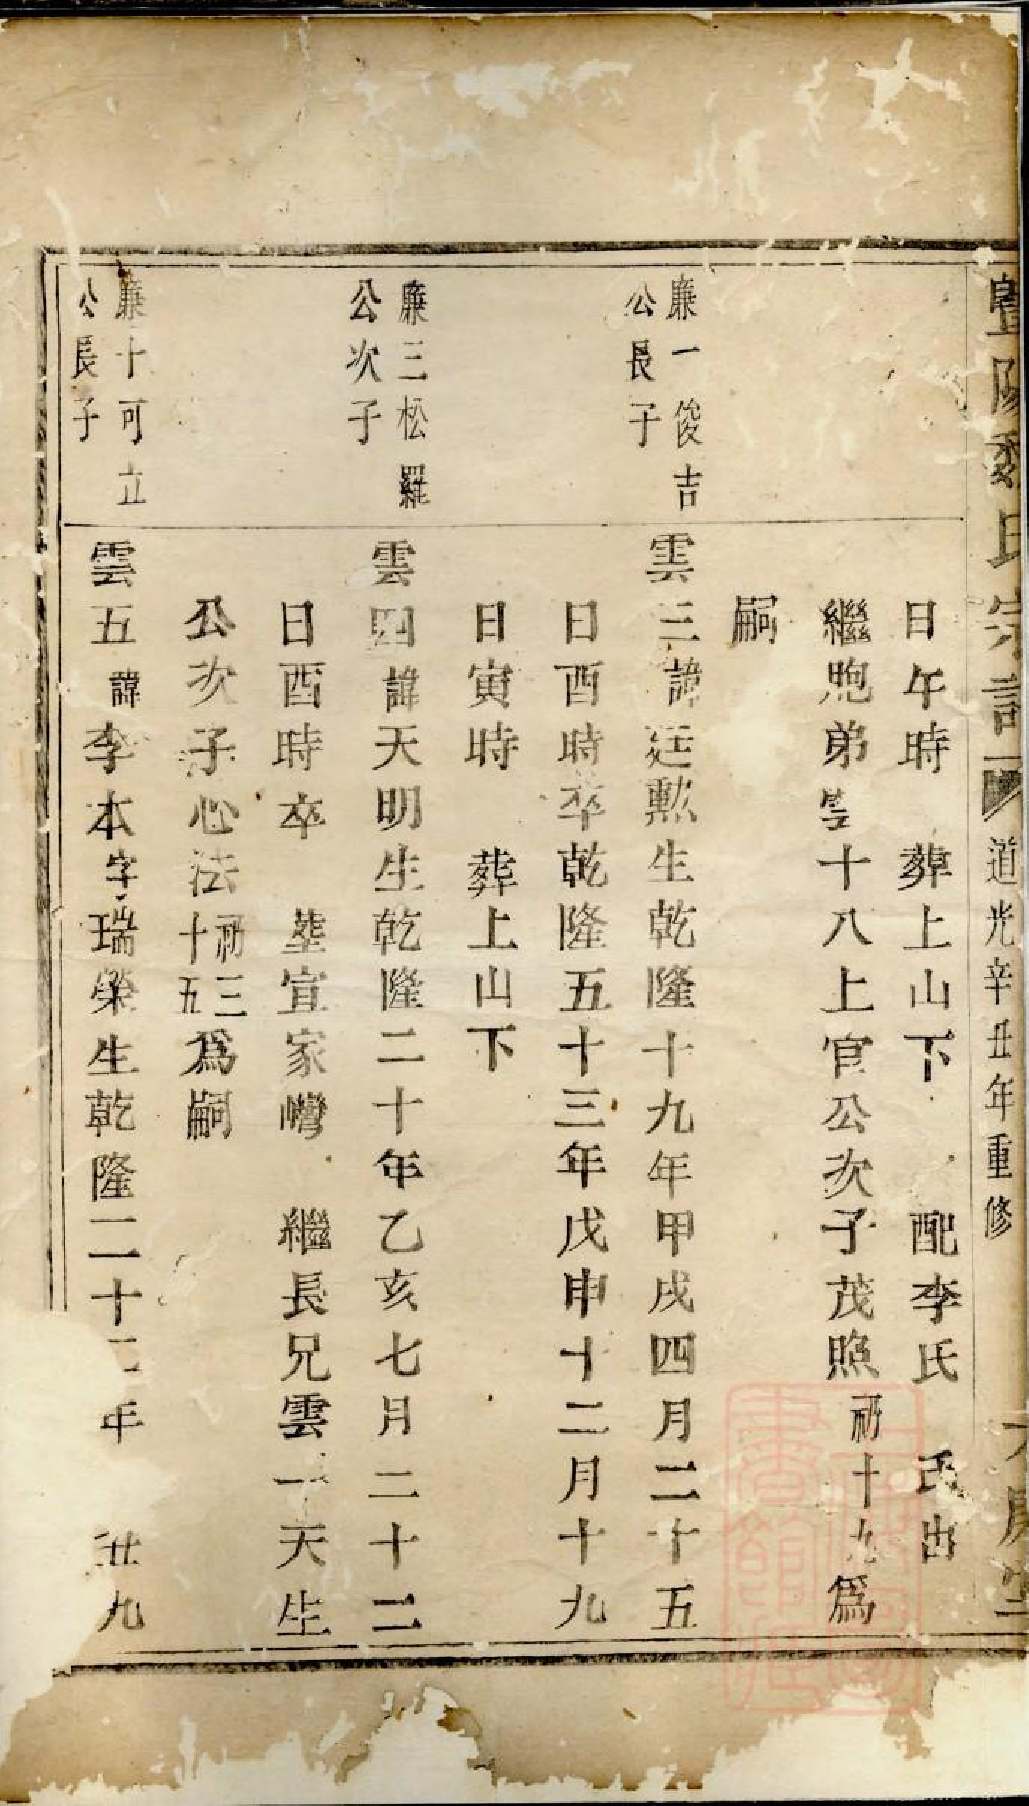 暨陽魏氏宗譜
道光辛丑年重修
日午時 葬上山下 配李氏 氏出
繼胞弟雲十八上官公次子茂照礽十九爲
嗣
廉一俊吉
公長子
雲三諱廷勲生乾隆十九年甲戌四月二十五
日酉時卒乾隆五十三年戊申十二月十九
日寅時 葬上山下
廉三松羅
公次子
雲四諱天明生乾隆二十年乙亥七月二十二
日酉時卒 塟宣家灣 繼長兄雲一天生
公次子心法礽三十五爲嗣
廉十可立
公長子
雲五諱李本字瑞榮生乾隆二十 年 九